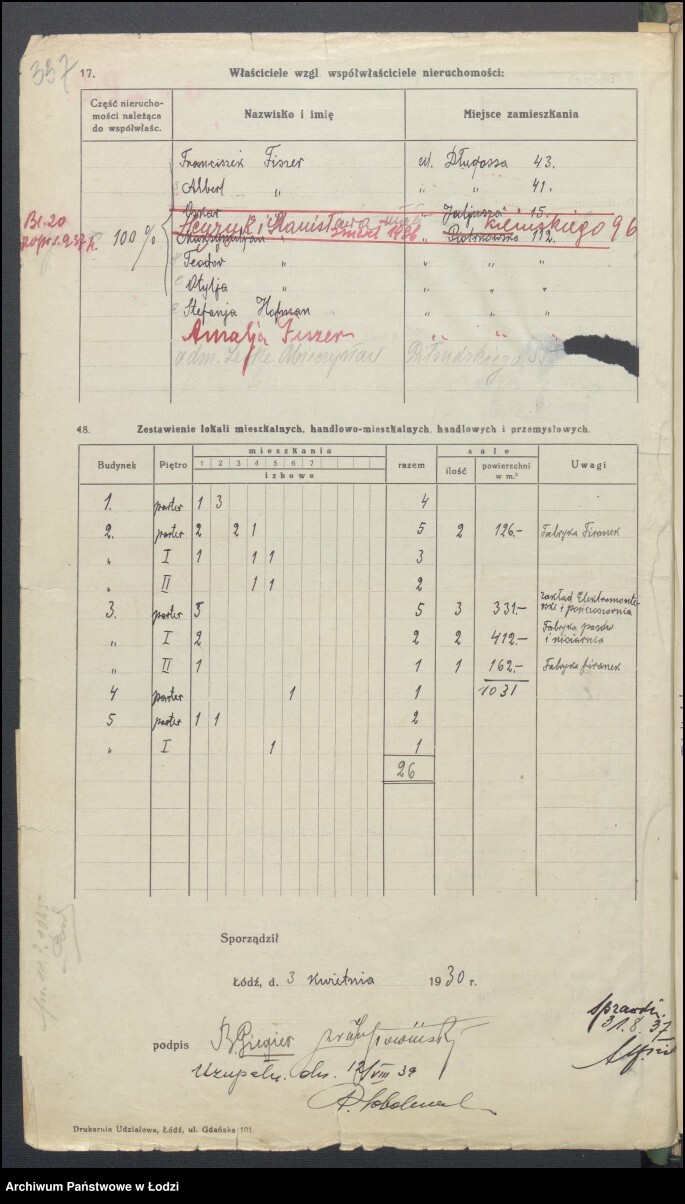 337
17. Właściciele wzgl. współwłaściciele nieruchomości:
Część nierucho-
mości należąca
do współwłaśc.
Nazwisko i imię
Miejsce zamieszkania
Franciszek Fiszer ul. Długosza 43.
Albert " " " 41.
Oskar 15.
Br. 20
100 % Henryk i Stanisława 1936 Kilińskiego 96
Piotrkowska 112.
Teodor " " " "
Otylja " " " "
Stefanja Hofman " " "
Amalja Fiszer " "
adm. Mieczysław Piłsudskiego
18. Zestawienie lokali mieszkalnych, handlowo-mieszkalnych, handlowych i przemysłowych.
Budynek Piętro mieszkania razem sale Uwagi
1 2 3 4 5 6 7
izbowe
ilość powierzchni
w m.²
1. parter 1 3 4
2. parter 2 2 1 5 2 126.- Fabryka Firanek
" I 1 1 1 3
" II 1 1 2
3. parter 5 5 3 331.- zakład Elektromonter-
ski i pończosznia
" I 2 2 2 412.- Fabryka pasów
i niciarnia
" II 1 1 1 162.- Fabryka firanek
4 parter 1 1 1031
5 parter 1 1 2
" I 1 1
26
Sporządził
Łódź, d. 3 kwietnia 1930 r.
podpis
Uzupełn. dn. 12/VIII 39
Sprawdz.
31.8.37
Drukarnia Udziałowa, Łódź, ul. Gdańska 101.
Archiwum Państwowe w Łodzi